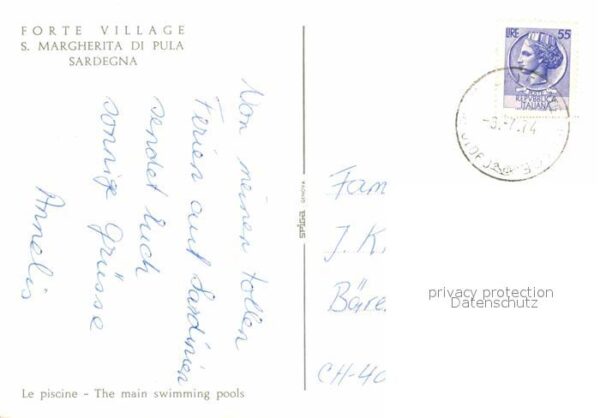 FORTE VILLAGE
S. MARGHERITA DI PULA
SARDEGNA
Von meinen tollen
Ferien auf Sardinien
sendet Euch
sonnige Grüsse
Annelis
Le piscine - The main swimming pools
LIRE 55
REPVBBLICA
ITALIANA
7.74
Fam
J. K.
Bäre
CH-40
privacy protection
Datenschutz